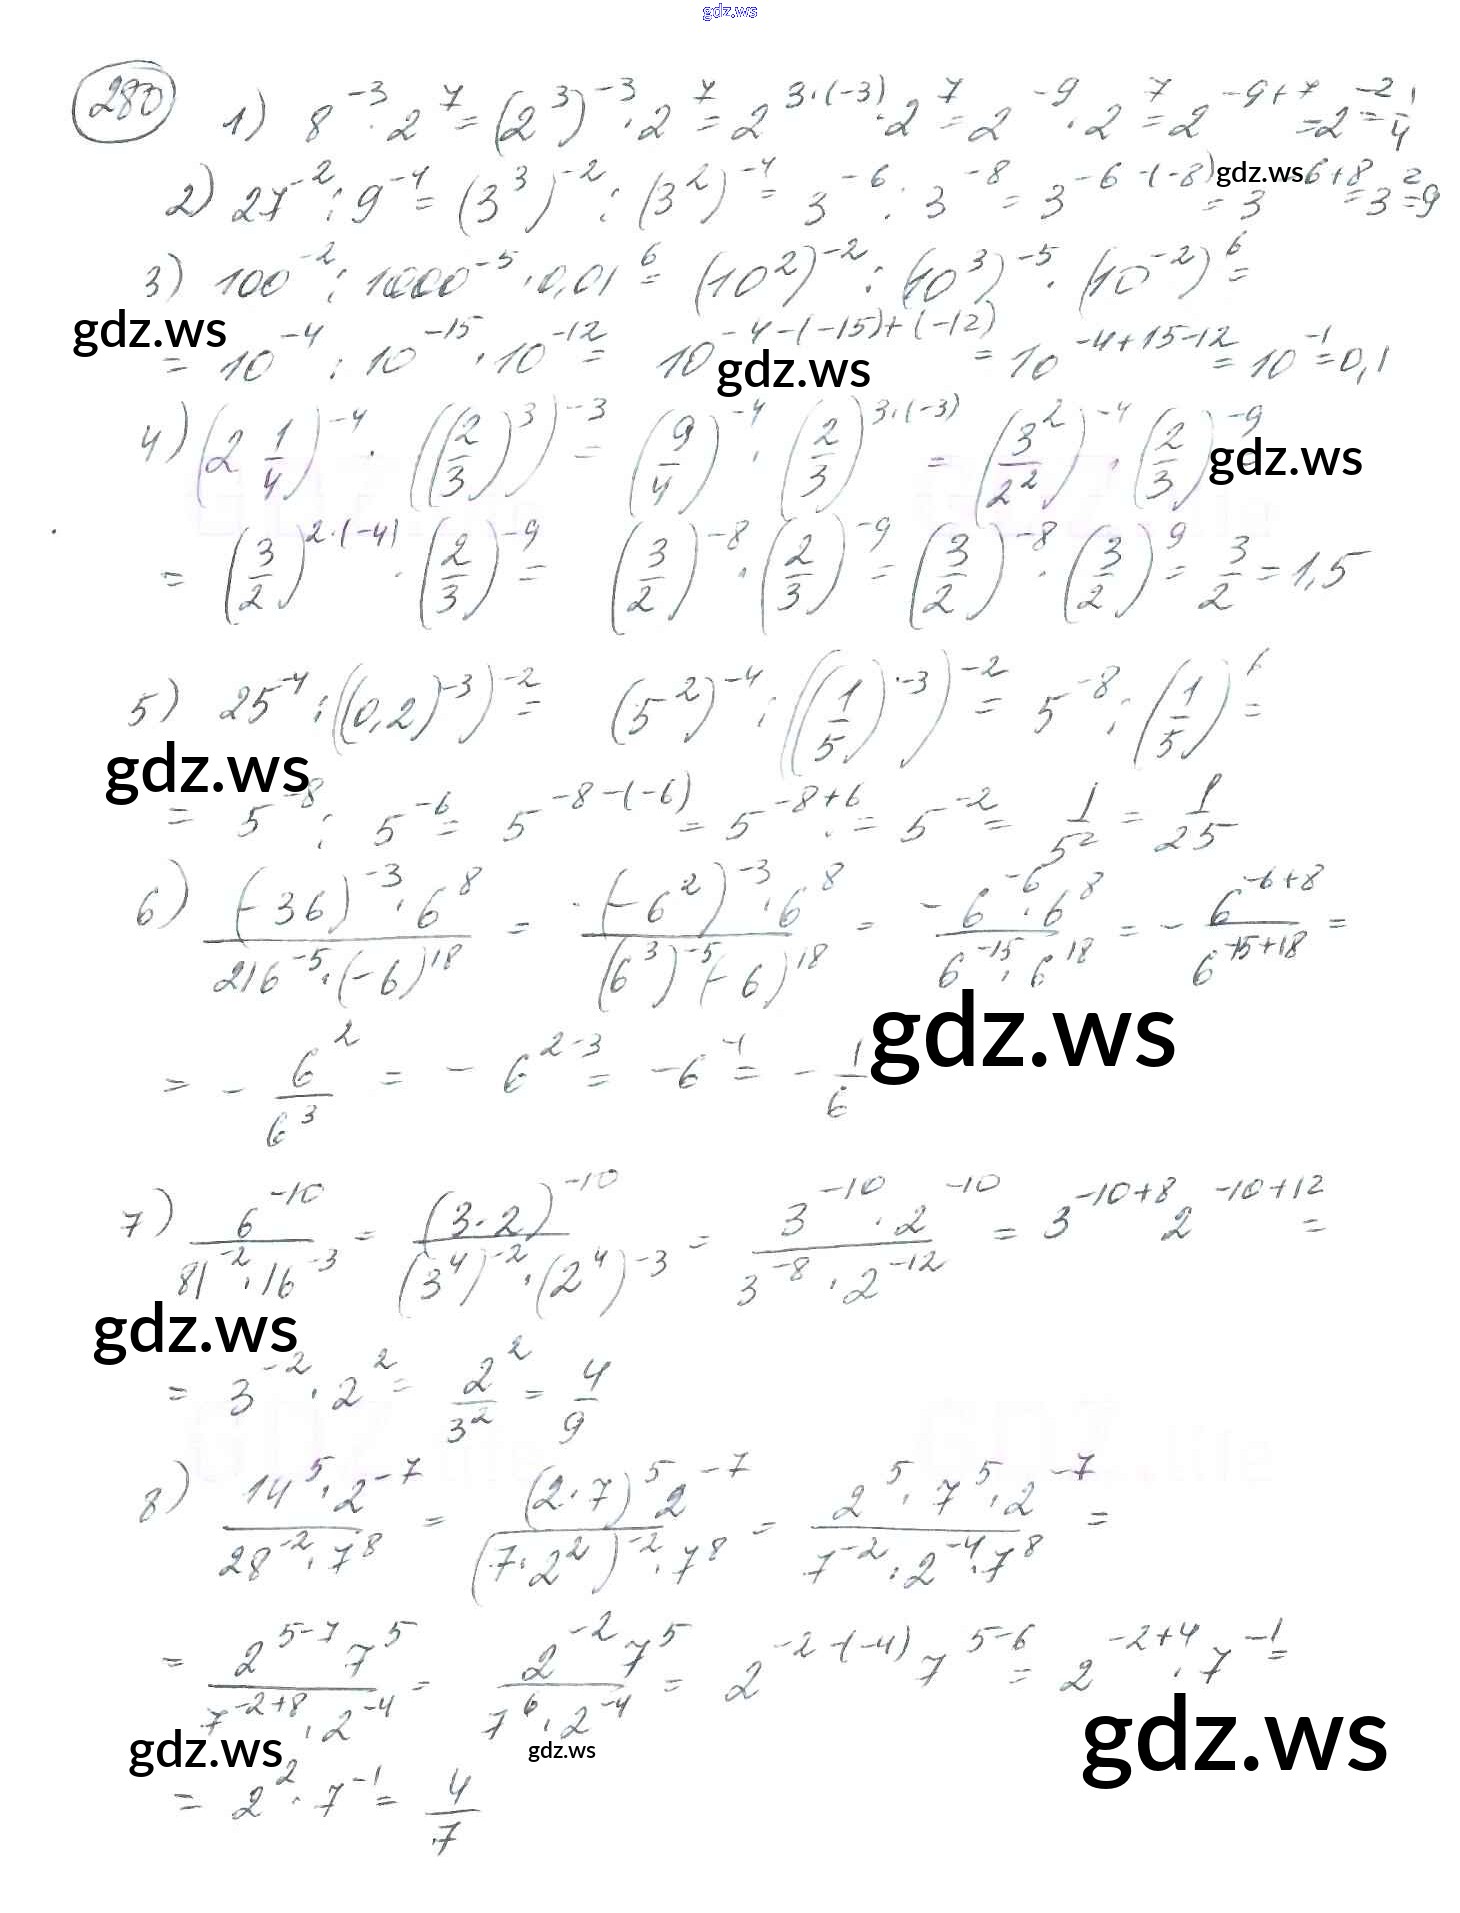 gdz.ws
280 1) 8^{-3} · 2^7 = (2^3)^{-3} · 2^7 = 2^{3·(-3)} · 2^7 = 2^{-9} · 2^7 = 2^{-9+7} = 2^{-2} = 1/4
2) 27^{-2} : 9^{-4} = (3^3)^{-2} : (3^2)^{-4} = 3^{-6} : 3^{-8} = 3^{-6-(-8)} = 3^{-6+8} = 3^2 = 9
gdz.ws
3) 100^{-2} : 1000^{-5} · 0,01^6 = (10^2)^{-2} : (10^3)^{-5} · (10^{-2})^6 =
gdz.ws
= 10^{-4} : 10^{-15} · 10^{-12} = 10^{-4-(-15)+(-12)} = 10^{-4+15-12} = 10^{-1} = 0,1
gdz.ws
4) (2 1/4)^{-4} · ((2/3)^3)^{-3} = (9/4)^{-4} · (2/3)^{3·(-3)} = (3^2/2^2)^{-4} · (2/3)^{-9}
gdz.ws
= (3/2)^{2·(-4)} · (2/3)^{-9} = (3/2)^{-8} · (2/3)^{-9} = (3/2)^{-8} · (3/2)^9 = 3/2 = 1,5
5) 25^{-4} : ((0,2)^{-3})^{-2} = (5^2)^{-4} : ((1/5)^{-3})^{-2} = 5^{-8} : (1/5)^6 =
gdz.ws
= 5^{-8} : 5^{-6} = 5^{-8-(-6)} = 5^{-8+6} = 5^{-2} = 1/5^2 = 1/25
6) (-36)^{-3} · 6^8 / 216^{-5} · (-6)^{18} = (-6^2)^{-3} · 6^8 / (6^3)^{-5} (-6)^{18} = -6^{-6} · 6^8 / 6^{-15} · 6^{18} = - 6^{-6+8} / 6^{-15+18} =
gdz.ws
= - 6^2 / 6^3 = - 6^{2-3} = -6^{-1} = - 1/6
7) 6^{-10} / 81^{-2} · 16^{-3} = (3·2)^{-10} / (3^4)^{-2} · (2^4)^{-3} = 3^{-10} · 2^{-10} / 3^{-8} · 2^{-12} = 3^{-10+8} 2^{-10+12} =
gdz.ws
= 3^{-2} · 2^2 = 2^2 / 3^2 = 4/9
8) 14^5 · 2^{-7} / 28^{-2} · 7^8 = (2·7)^5 2^{-7} / (7·2^2)^{-2} · 7^8 = 2^5 · 7^5 · 2^{-7} / 7^{-2} · 2^{-4} · 7^8 =
= 2^{5-7} 7^5 / 7^{-2+8} · 2^{-4} = 2^{-2} 7^5 / 7^6 · 2^{-4} = 2^{-2-(-4)} 7^{5-6} = 2^{-2+4} · 7^{-1} =
gdz.ws
gdz.ws
gdz.ws
= 2^2 · 7^{-1} = 4/7